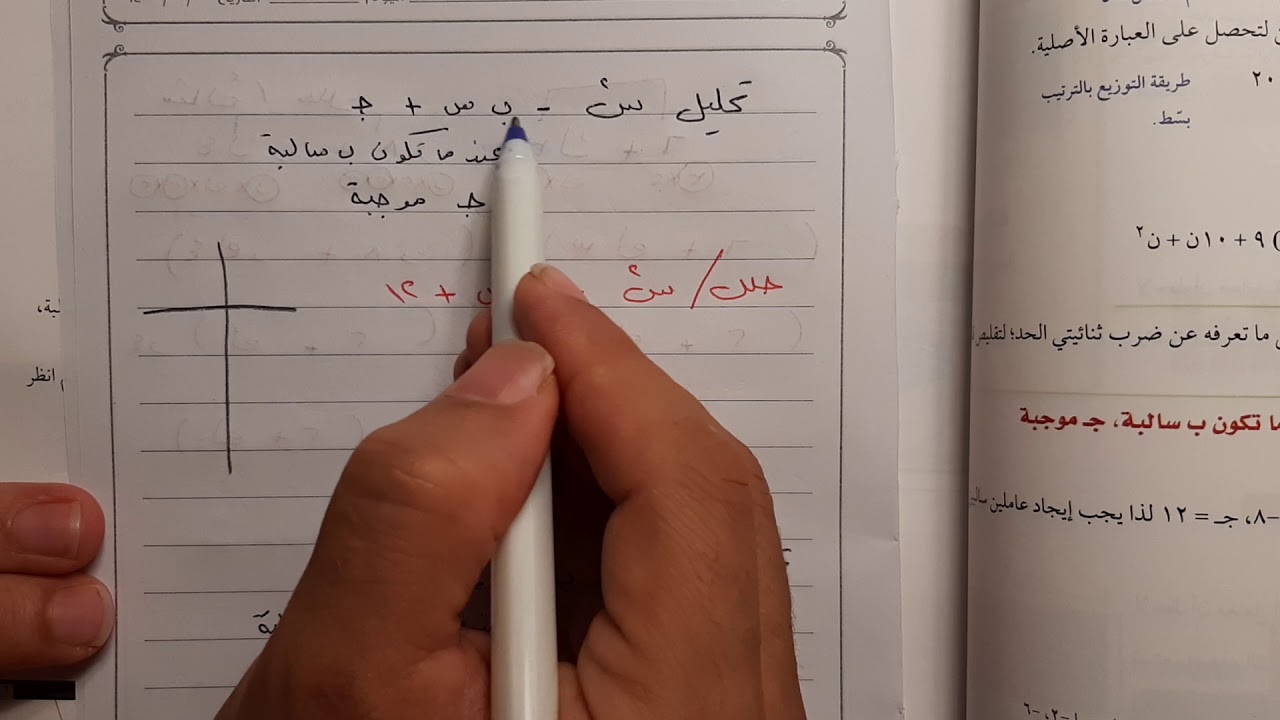 تحليل س² - ب س + جـ
عند ما تكون ب سالبة
جـ موجبة
حلل / س² + ١٢
لتحصل على العبارة الأصلية.
طريقة التوزيع بالترتيب
بسّط.
٢٠
٩ + ١٠ن + ن²
ما تعرفه عن ضرب ثنائيتي الحد؛ لتقليص
تكون ب سالبة، جـ موجبة
-٨، جـ = ١٢ لذا يجب إيجاد عاملين
انظر